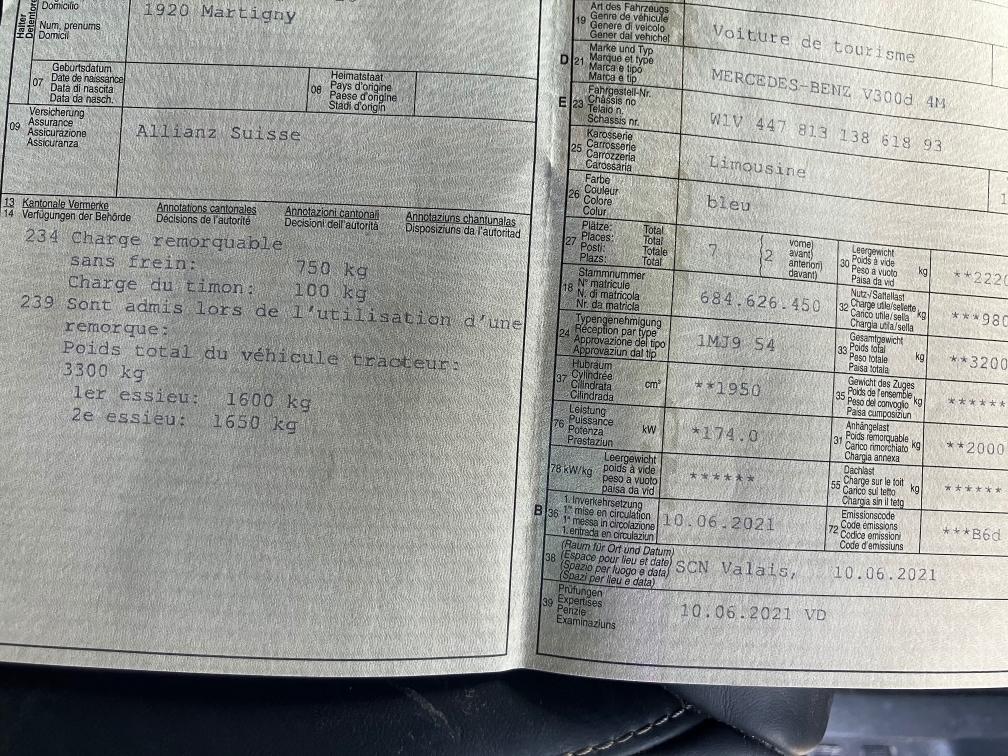 Halter
Détenteur
Domicilio
Num, prenums
Domicil
1920 Martigny
07
Geburtsdatum
Date de naissance
Data di nascita
Data da nasch.
08
Heimatstaat
Pays d'origine
Paese d'origine
Stadi d'origin
09
Versicherung
Assurance
Assicurazione
Assicuranza
Allianz Suisse
13 Kantonale Vermerke Annotations cantonales Annotazioni cantonali Annotaziuns chantunalas
14 Verfügungen der Behörde Décisions de l'autorité Decisioni dell'autorità Disposiziuns da l'autoritad
234 Charge remorquable
sans frein: 750 kg
Charge du timon: 100 kg
239 Sont admis lors de l'utilisation d'une
remorque:
Poids total du véhicule tracteur:
3300 kg
1er essieu: 1600 kg
2e essieu: 1650 kg
19
Art des Fahrzeugs
Genre de véhicule
Genere di veicolo
Gener dal vehichel
Voiture de tourisme
D 21
Marke und Typ
Marque et type
Marca e tipo
Marca e tip
MERCEDES-BENZ V300d 4M
E 23
Fahrgestell-Nr.
Châssis no
Telaio n.
Schassis nr.
W1V 447 813 138 618 93
25
Karosserie
Carrosserie
Carrozzeria
Carossaria
Limousine
26
Farbe
Couleur
Colore
Colur
bleu
27
Plätze: Total
Places: Total
Posti: Totale
Plazs: Total
7
2
vorne)
avant)
anteriori)
davant)
30
Leergewicht
Poids à vide
Peso a vuoto
Paisa da vid
kg
**222
18
Stammnummer
N° matricule
N. di matricola
Nr. da matricla
684.626.450
32
Nutz-/Sattellast
Charge utile/sellette
Carico utile/sella
Chargia utila/sella
kg
***980
24
Typengenehmigung
Réception par type
Approvazione del tipo
Approvaziun dal tip
1MJ9 54
33
Gesamtgewicht
Poids total
Peso totale
Paisa totala
kg
**3200
37
Hubraum
Cylindrée
Cilindrata
Cilindrada
cm³
**1950
35
Gewicht des Zuges
Poids de l'ensemble
Peso del convoglio
Paisa cumposiziun
kg
******
76
Leistung
Puissance
Potenza
Prestaziun
kW
*174.0
31
Anhängelast
Poids remorquable
Carico rimorchiato
Chargia annexa
kg
**2000
78 kW/kg
Leergewicht
poids à vide
peso a vuoto
paisa da vid
******
55
Dachlast
Charge sur le toit
Carico sul tetto
Chargia sin il tetg
kg
******
B 36
1. Inverkehrsetzung
1re mise en circulation
1a messa in circolazione
1. entrada en circulaziun
10.06.2021
72
Emissionscode
Code émissions
Codice emissioni
Code d'emissiuns
***B6d
38
(Raum für Ort und Datum)
(Espace pour lieu et date)
(Spazio per luogo e data)
(Spazi per lieu e data)
SCN Valais, 10.06.2021
39
Prüfungen
Expertises
Perizie
Examinaziuns
10.06.2021 VD